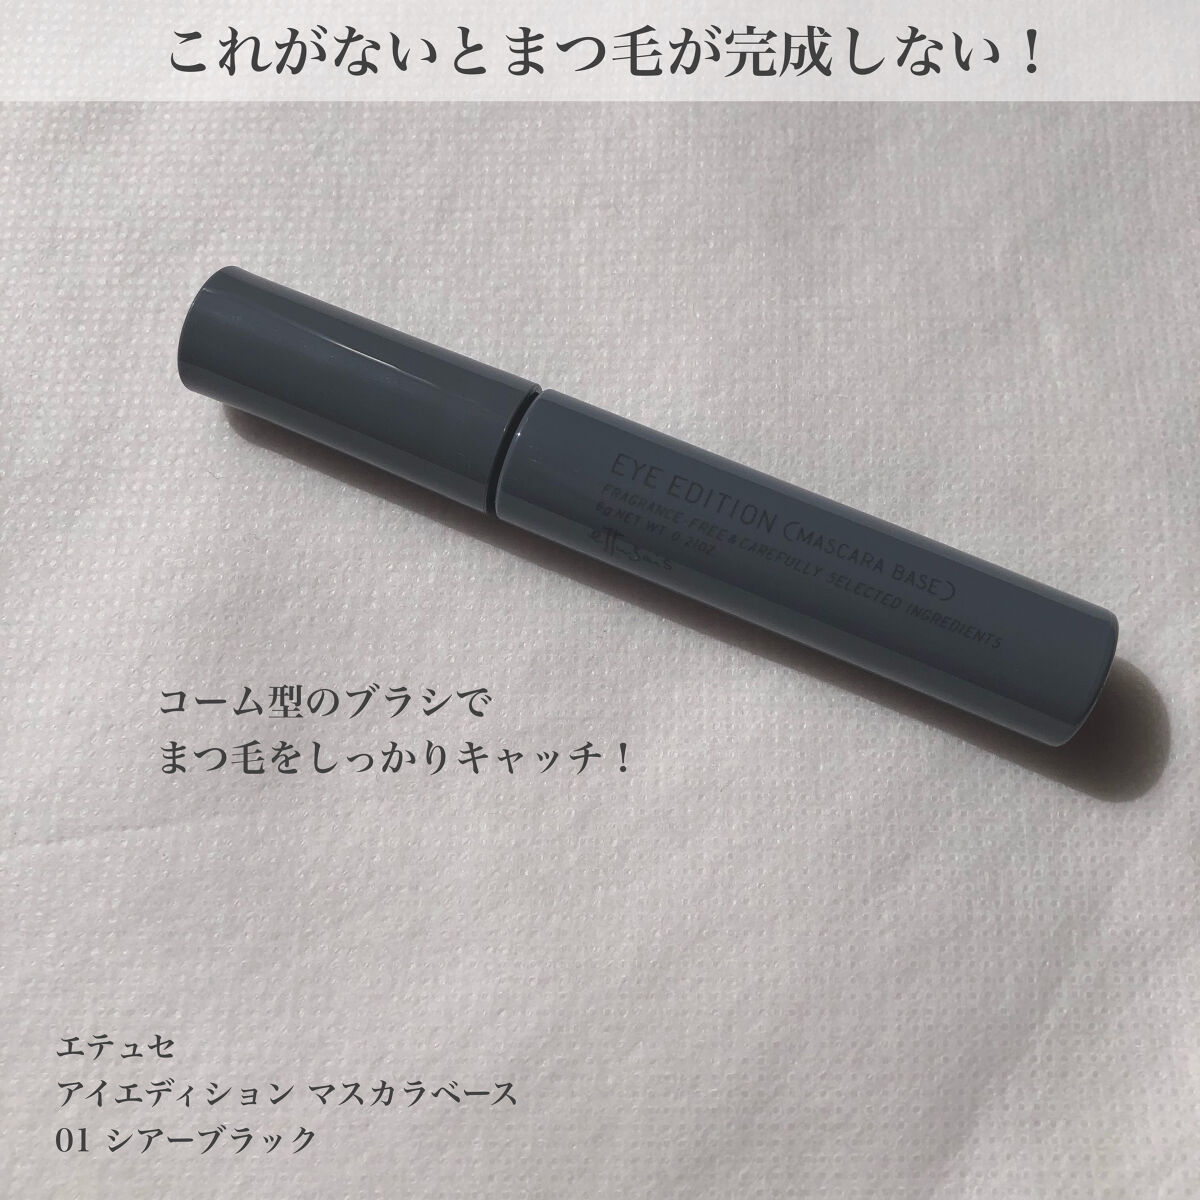 これがないとまつ毛が完成しない！
EYE EDITION (MASCARA BASE)
FRAGRANCE-FREE & CAREFULLY SELECTED INGREDIENTS
6g NET WT 0.21OZ
ettusais
コーム型のブラシで
まつ毛をしっかりキャッチ！
エテュセ
アイエディション マスカラベース
01 シアーブラック